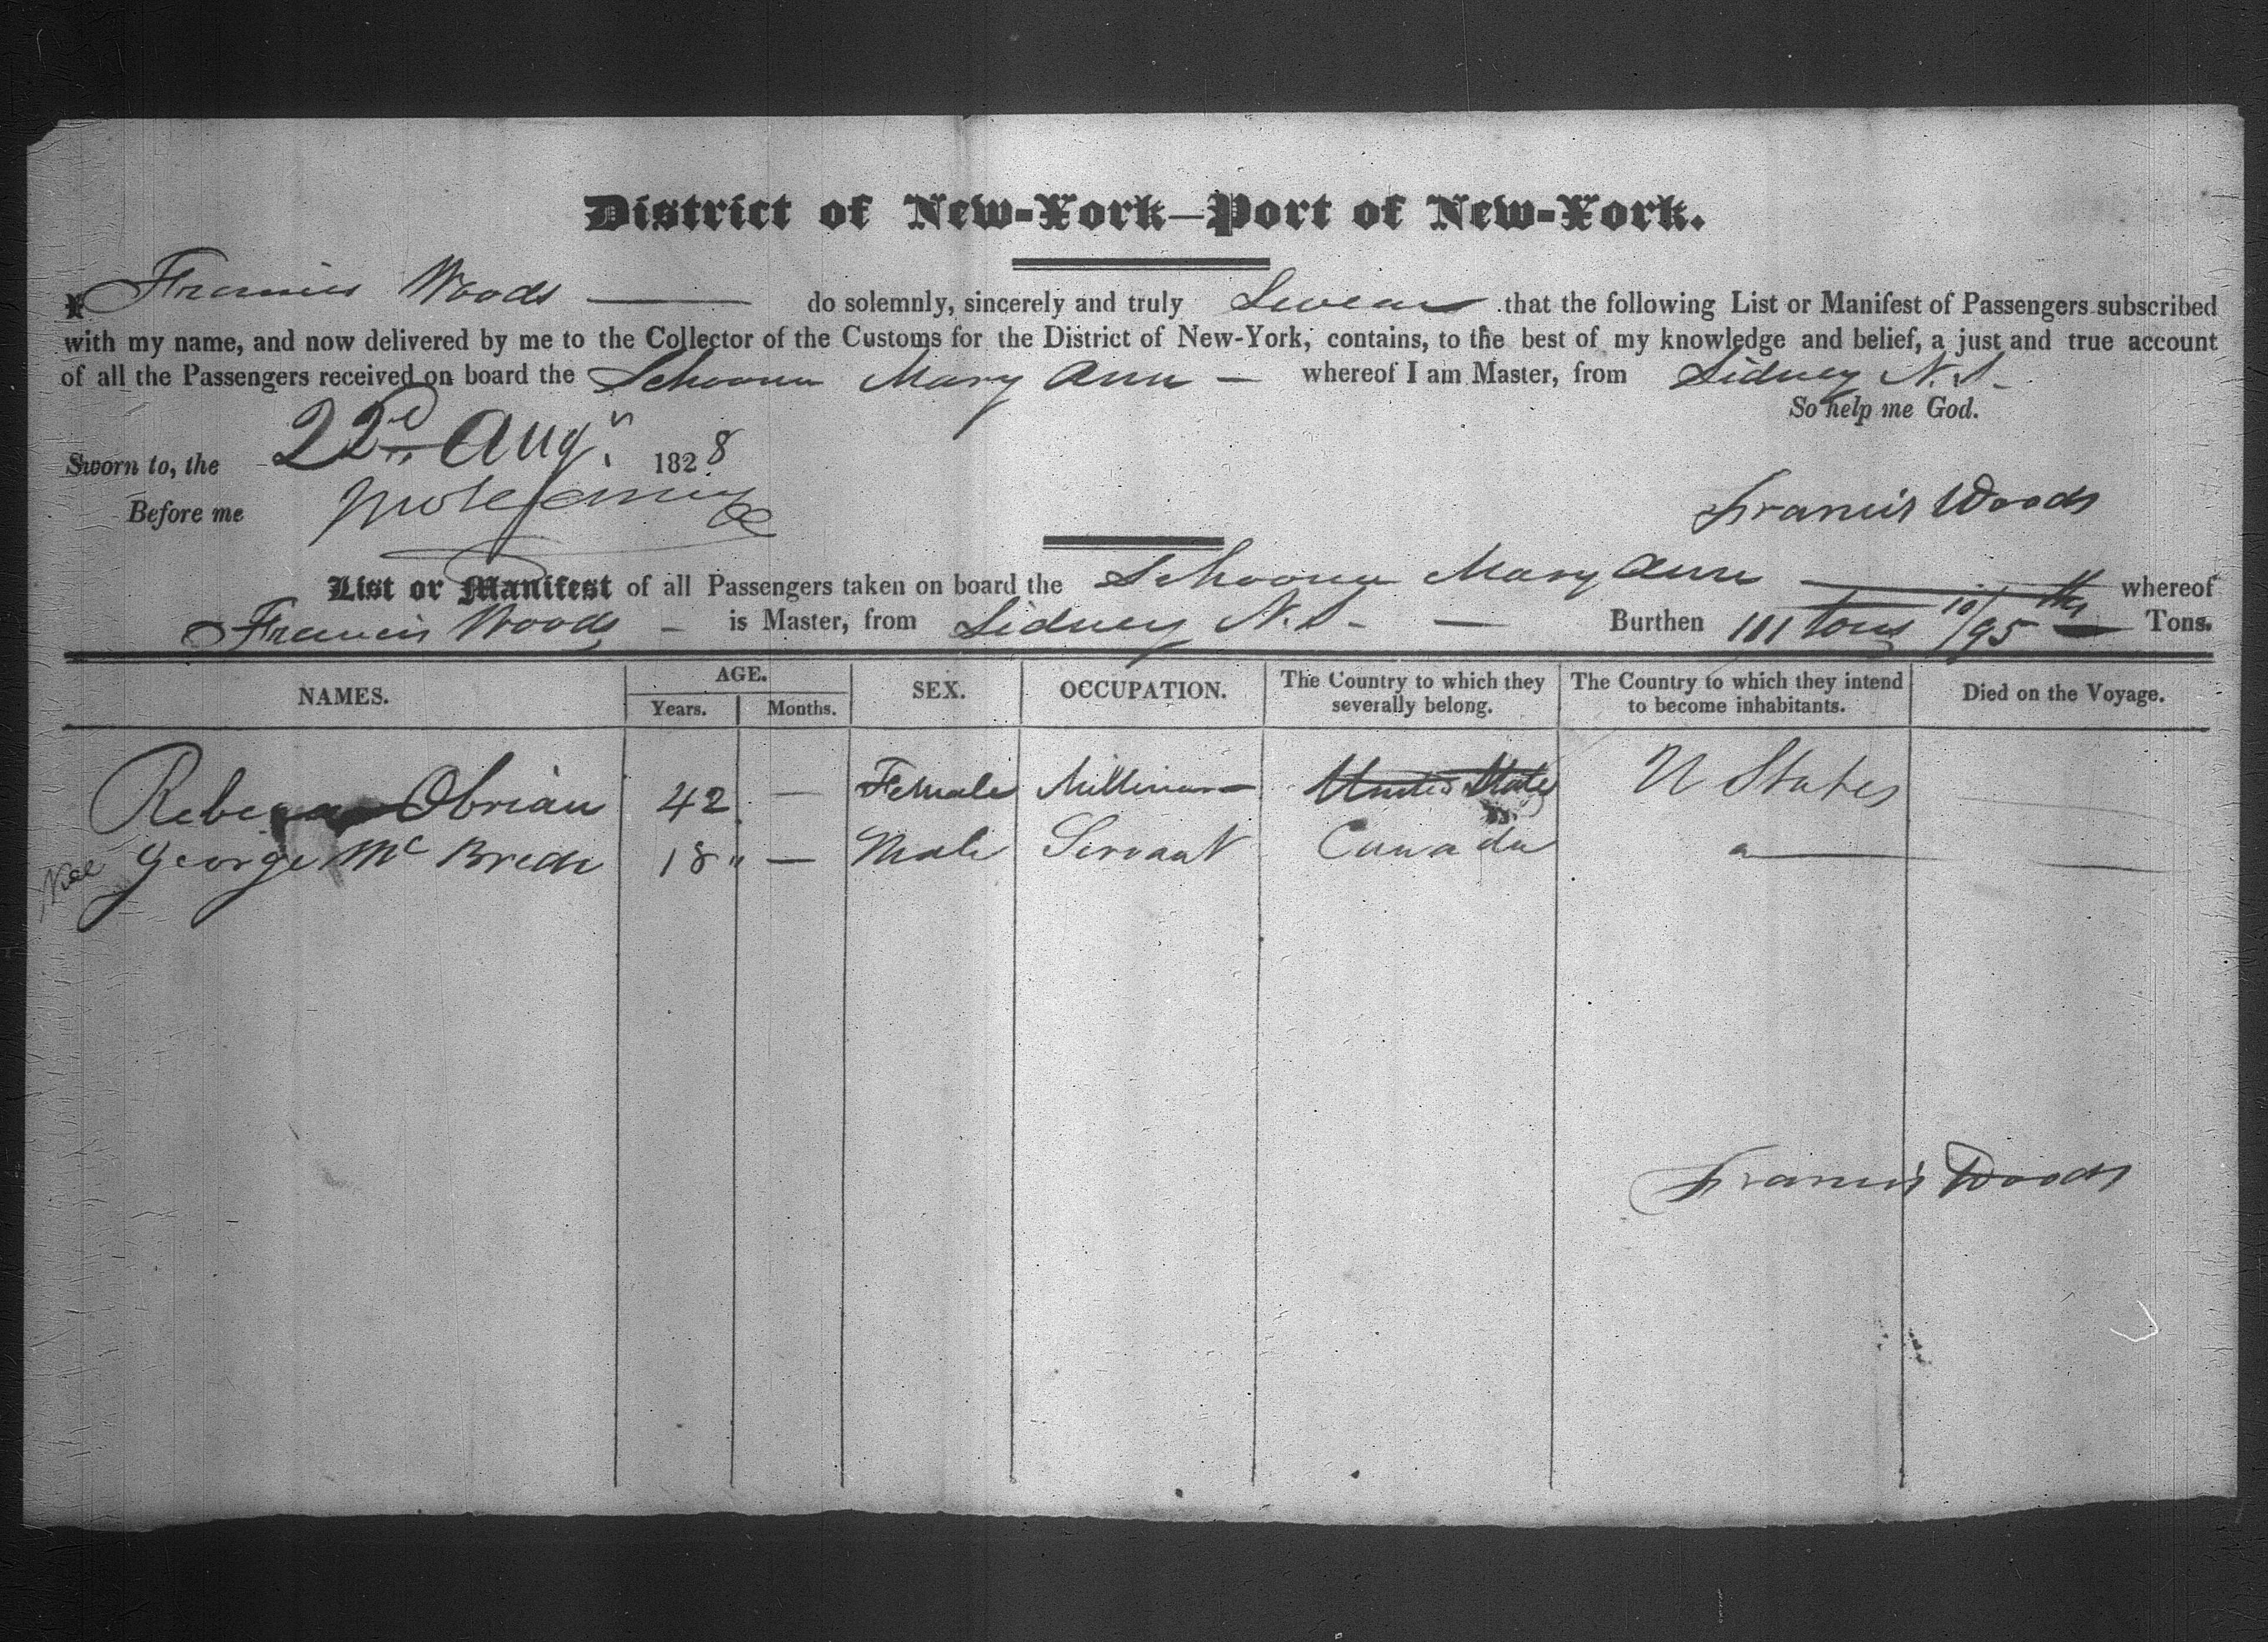 District of New-York—Port of New-York.
I Francis Woods — do solemnly, sincerely and truly Swear that the following List or Manifest of Passengers subscribed
with my name, and now delivered by me to the Collector of the Customs for the District of New-York, contains, to the best of my knowledge and belief, a just and true account
of all the Passengers received on board the Schooner Mary Ann — whereof I am Master, from Sidney N.S.
So help me God.
Sworn to, the 22d Augt. 1828
Before me
Francis Woods
List or Manifest of all Passengers taken on board the Schooner Mary Ann — whereof
Francis Woods — is Master, from Sidney N.S. — Burthen 111 tons 10/95 ths Tons.
NAMES. AGE. SEX. OCCUPATION. The Country to which they severally belong. The Country to which they intend to become inhabitants. Died on the Voyage.
Years. Months.
Rebeca Obrian 42 — Female Milliner United States U States
George Mc Bride 18 " — Male Servant Canada
Francis Woods